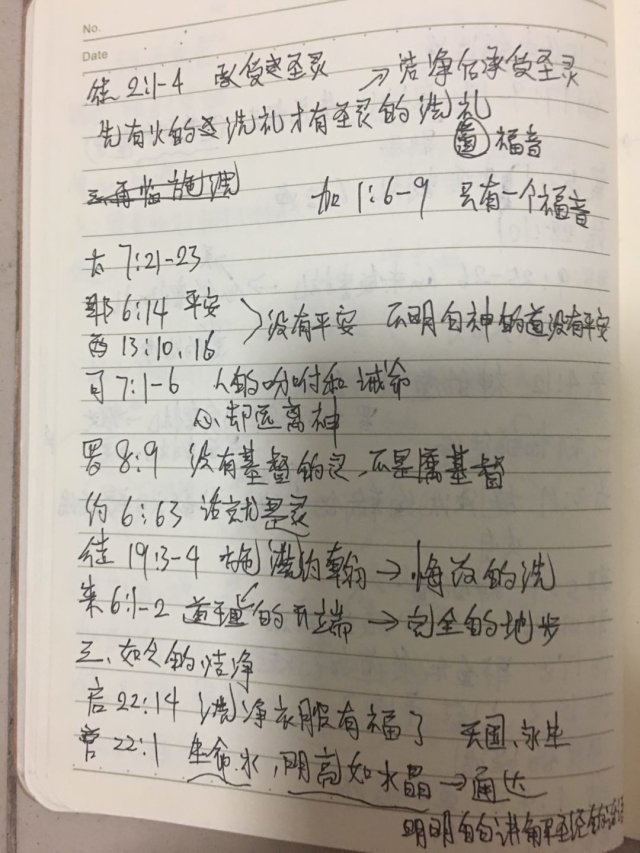 No.
Date
徒 2:1-4 承受圣灵 → 洁净后承受圣灵
先有火的洗礼才有圣灵的洗礼
道 福音
三、再临施洗 加 1:6-9 只有一个福音
太 7:21-23
耶 6:14 平安
没有平安 不明白神的道没有平安
西 13:10,16
可 7:1-6 人的吩咐和诫命
心却远离神
罗 8:9 没有基督的灵,不是属基督
约 6:63 话就是灵
徒 19:3-4 施洗约翰 → 悔改的洗
来 6:1-2 道理的开端 → 完全的地步
三、如今的洁净
启 22:14 洗净衣服有福了 天国、永生
启 22:1 生命水,明亮如水晶 → 通达
明明白白讲解圣经的